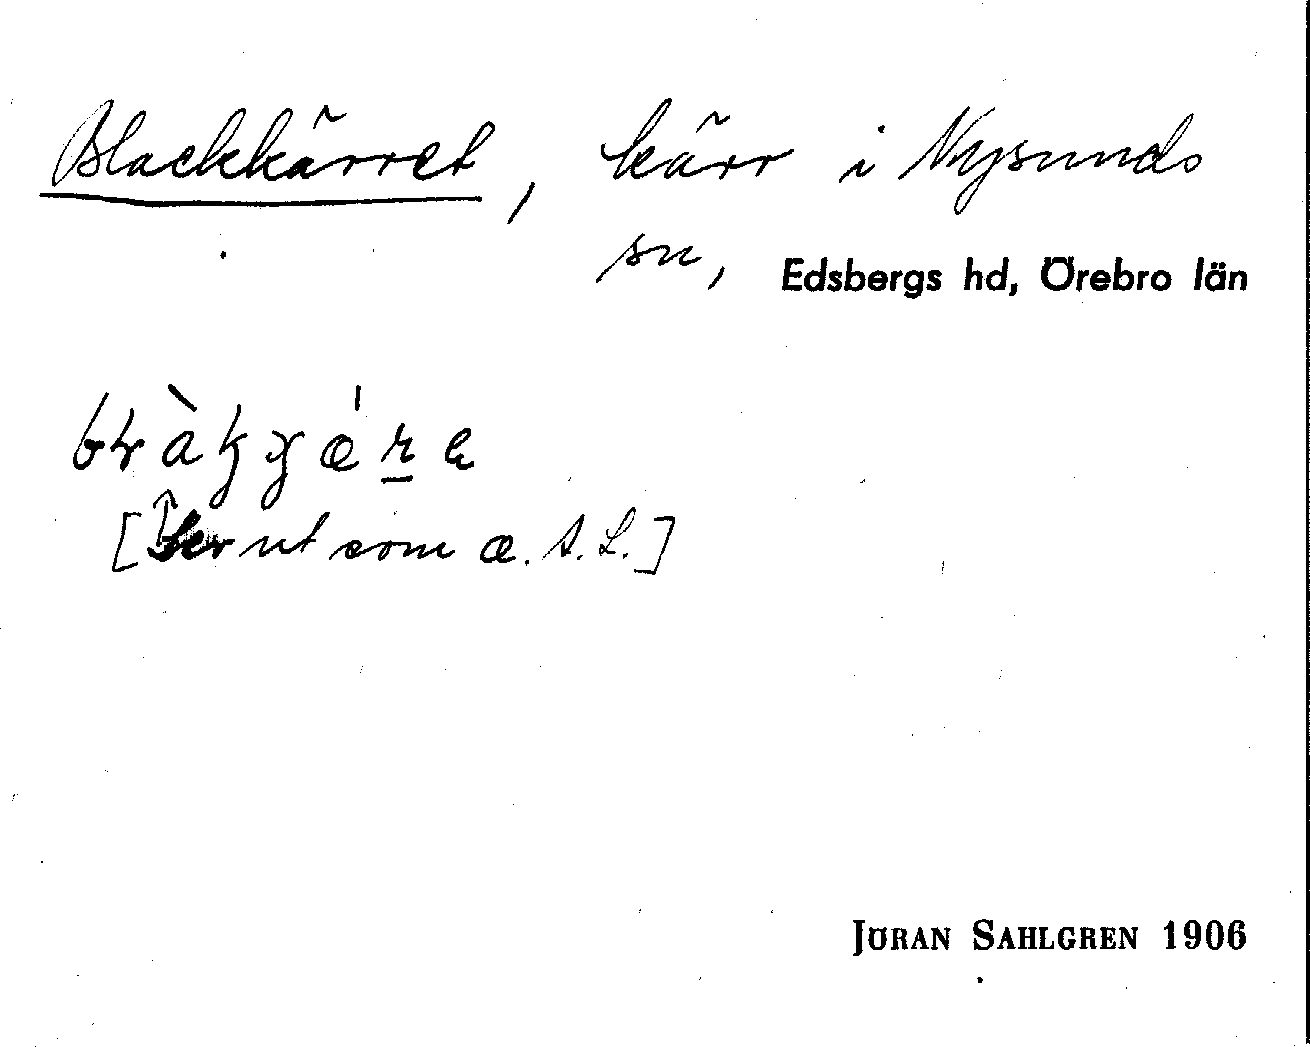 Blackkärret, kärr i Nysunds
sn, Edsbergs hd, Örebro län
[Ser ut som æ. S.L.]
JÖRAN SAHLGREN 1906